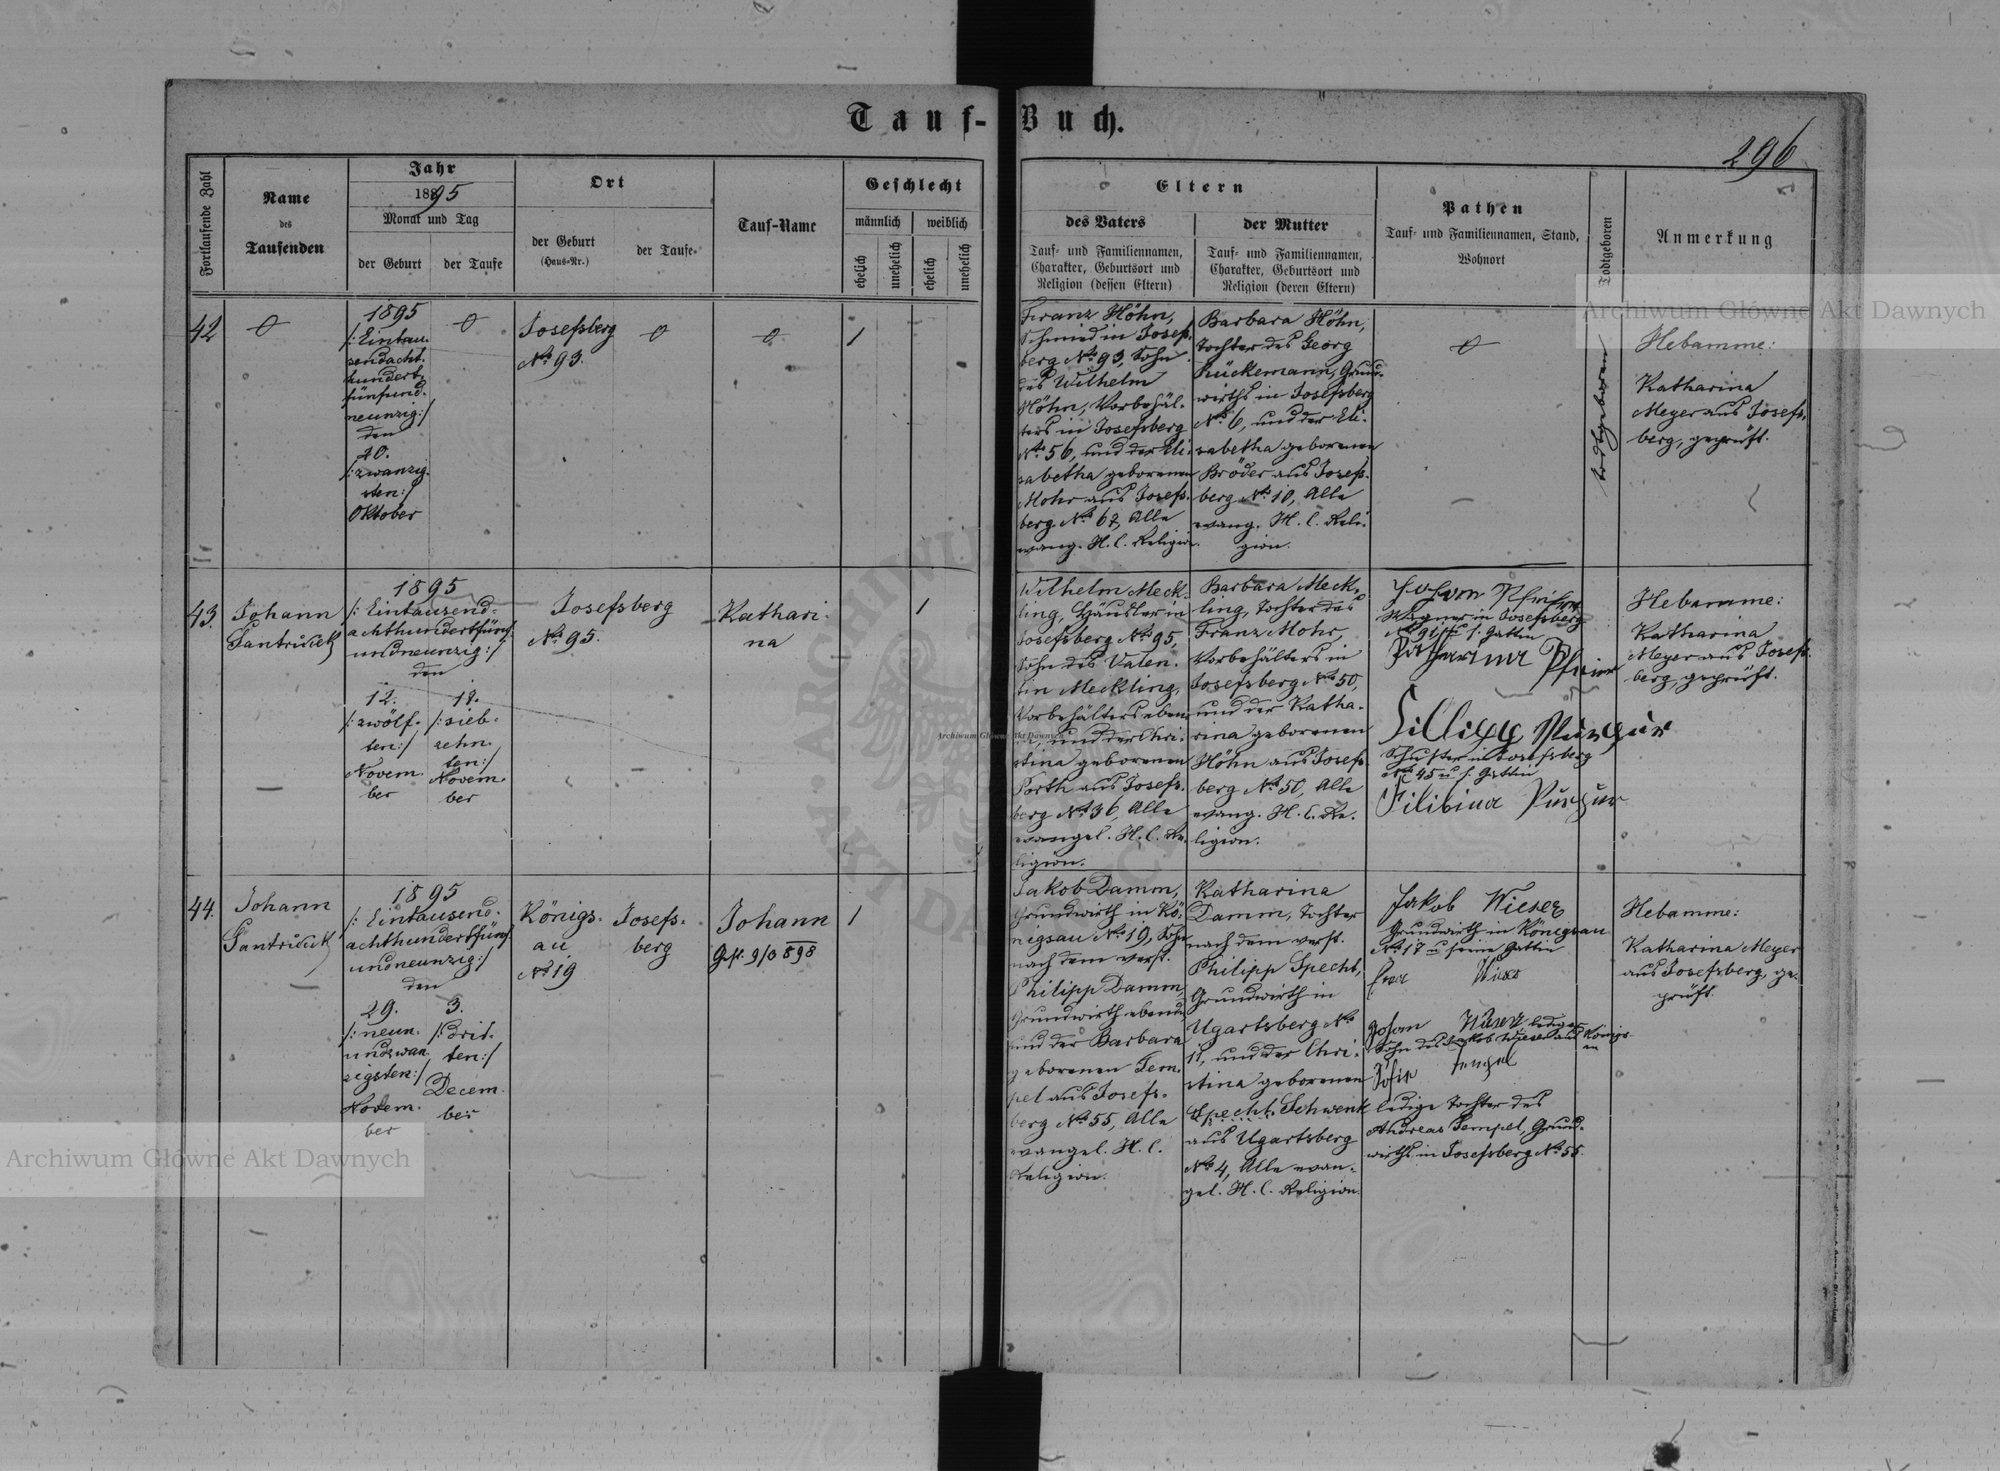 Tauf-Buch.
296
Fortlaufende Zahl
Name
des
Taufenden
Jahr
1895
Monat und Tag
der Geburt
der Taufe
Ort
der Geburt
(Haus-Nr.)
der Taufe
Tauf-Name
Geschlecht
männlich
weiblich
ehelich
unehelich
ehelich
unehelich
Eltern
des Vaters
Tauf- und Familiennamen,
Charakter, Geburtsort und
Religion (dessen Eltern)
der Mutter
Tauf- und Familiennamen,
Charakter, Geburtsort und
Religion (deren Eltern)
Pathen
Tauf- und Familiennamen, Stand,
Wohnort
Todtgeboren
Anmerkung
42
1895
/: Eintau-
sendacht-
hundert-
fünfund-
neunzig :/
den
20.
/: zwanzig-
sten :/
Oktober
Josefsberg
No 93.
1
Franz Höhn,
Schmied in Josefs-
berg No 93, Sohn
des Wilhelm
Höhn, Vorbehäl-
ters in Josefsberg
No 56, und der Eli-
sabetha geborenen
Mohr aus Josefs-
berg No 62, Alle
evang. H. C. Religion.
Barbara Höhn,
Tochter des Georg
Rückemann, Grund-
wirths in Josefsberg
No 6, und der Eli-
sabetha geborenen
Bröder aus Josefs-
berg No 10, Alle
evang. H. C. Reli-
gion.
todtgeboren
Hebamme:
Katharina
Meyer aus Josefs-
berg, geprüft.
43.
Johann
1895
/: Eintausend-
achthundertfünf-
undneunzig :/
den
12.
/: zwölf-
ten :/
Novem-
ber
17.
/: sieb-
zehn-
ten :/
Novem-
ber
Josefsberg
No 95.
Kathari-
na
1
Wilhelm Meck-
ling, Häusler in
Josefsberg No 95,
Sohn des Valen-
tin Meckling,
Vorbehälters eben-
da, und der Chri-
stina geborenen
Porth aus Josefs-
berg No 36, Alle
evangel. H. C. Re-
ligion.
Barbara Meck-
ling, Tochter des
Franz Mohr,
Vorbehälters in
Josefsberg No 50,
und der Katha-
rina geborenen
Höhn aus Josefs-
berg No 50, Alle
evang. H. C. Re-
ligion.
Wagner in Josefsberg
No 91 u s. Gattin
Katharina
Schuster in Josefsberg
No 45 u s. Gattin
Filibina
Hebamme:
Katharina
Meyer aus Josefs-
berg, geprüft.
44.
Johann
1895
/: Eintausend-
achthundertfünf-
undneunzig :/
den
29.
/: neun-
undzwan-
zigsten :/
Novem-
ber
3.
/: Drit-
ten :/
Decem-
ber
Königs-
au
No 19
Josefs-
berg
Johann
Gest. 9/3 898
1
Jakob Damm,
Grundwirth in Kö-
nigsau No 19, Sohn
nach dem verst.
Philipp Damm,
Grundwirth ebenda
und der Barbara
geborenen Tem-
pel aus Josefs-
berg No 55, Alle
evangel. H. C.
Religion.
Katharina
Damm, Tochter
nach dem verst.
Philipp Specht,
Grundwirth in
Ugartsberg No
11, und der Chri-
stina geborenen
Specht, Schwenk
aus Ugartsberg
No 4, Alle evan-
gel. H. C. Religion.
Jakob Wieser
Grundwirth in Königsau
No 17 u seine Gattin
Eva Wieser
Johann Wieser lediger
Sohn des Jakob Wieser aus Königs-
au
Sofie Tempel
ledige Tochter des
Andreas Tempel, Grund-
wirths in Josefsberg No 55.
Hebamme:
Katharina Meyer
aus Josefsberg, ge-
prüft.
Archiwum Główne Akt Dawnych
Archiwum Główne Akt Dawnych
Archiwum Główne Akt Dawnych